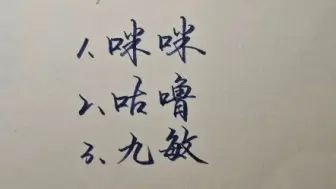 1、咪咪
2、咕噜
3、九敏